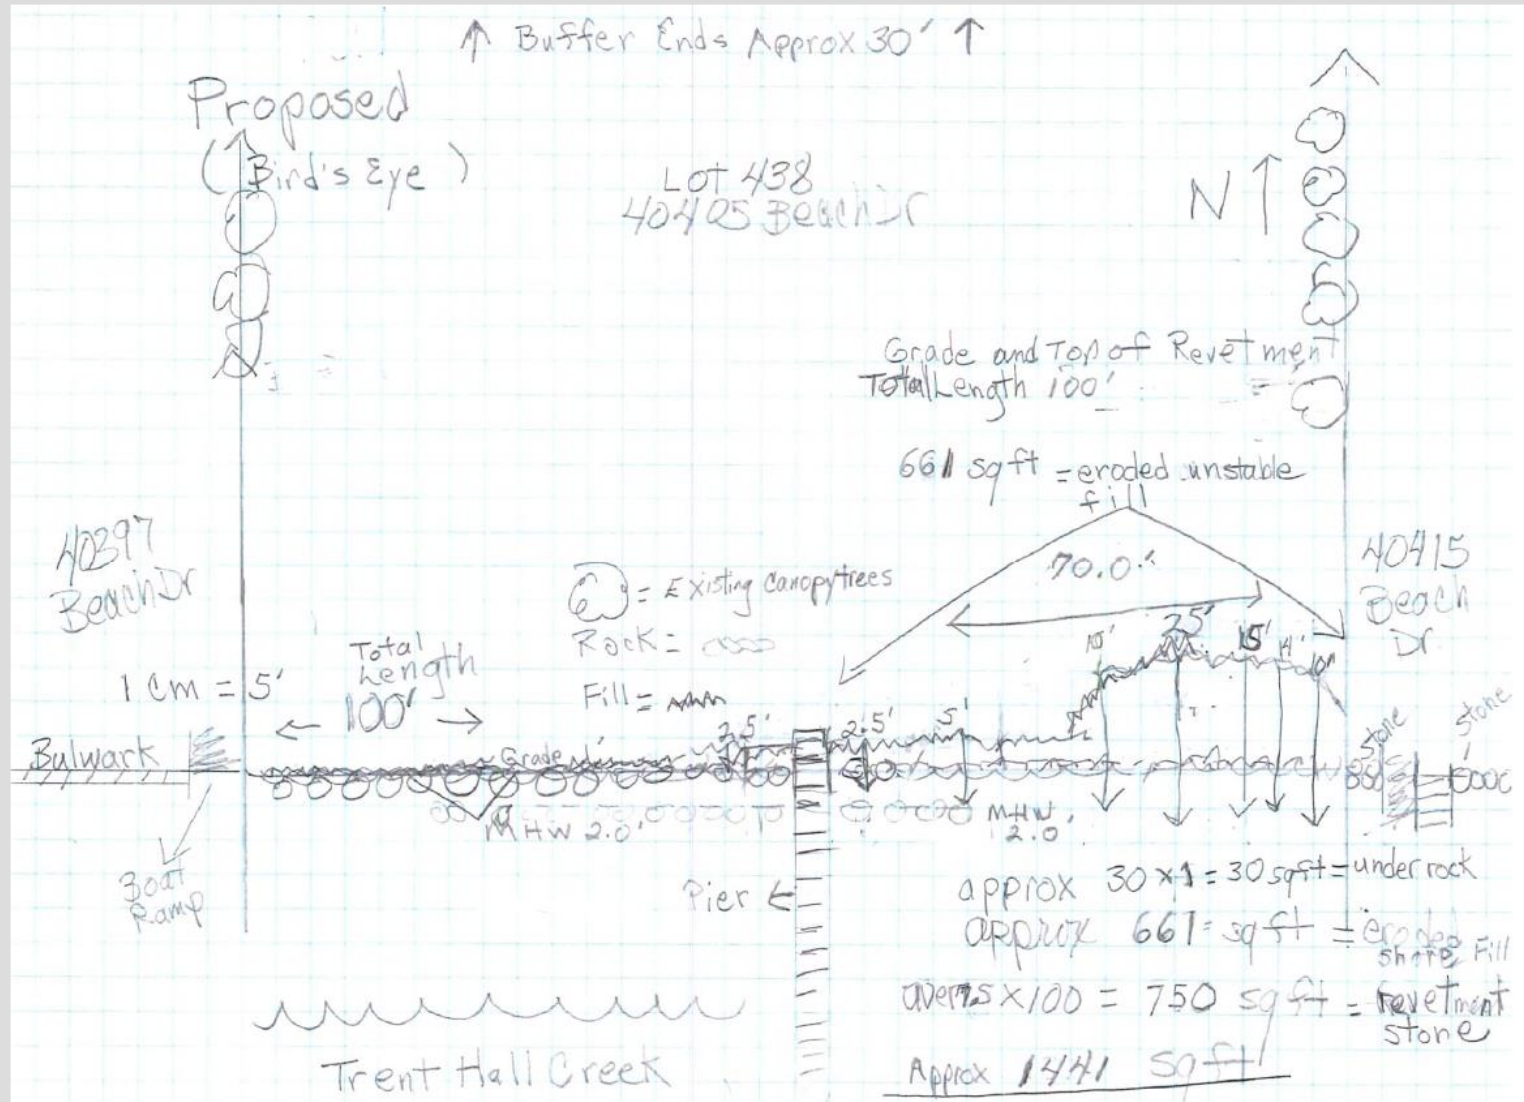 ↑ Buffer Ends Approx 30' ↑
Proposed
(Bird's Eye)
Lot 438
40405 Beach Dr
N ↑
Grade and Top of Revetment
Total Length 100'
661 sq ft = eroded unstable
fill
70.0'
40397
Beach Dr
40415
Beach
Dr
= Existing Canopy trees
Rock =
Fill =
1 cm = 5'
Total
Length
100'
10'
25'
15'
14'
10'
2.5'
2.5'
5'
stone
stone
Bulwark
Grade
MHW 2.0'
MHW
2.0'
Boat
Ramp
Pier ←
approx 30 x 1 = 30 sq ft = under rock
approx 661 = sq ft = eroded
shore Fill
aver 7.5 x 100 = 750 sq ft = revetment
stone
Approx 1441 sq ft
Trent Hall Creek